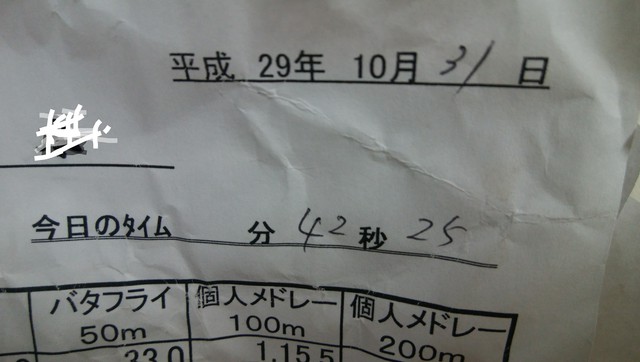 平成 29年 10月 31 日
今日のタイム 分 42 秒 25
バタフライ 個人メドレー 個人メドレー
50m 100m 200m
33.0 1.15.5